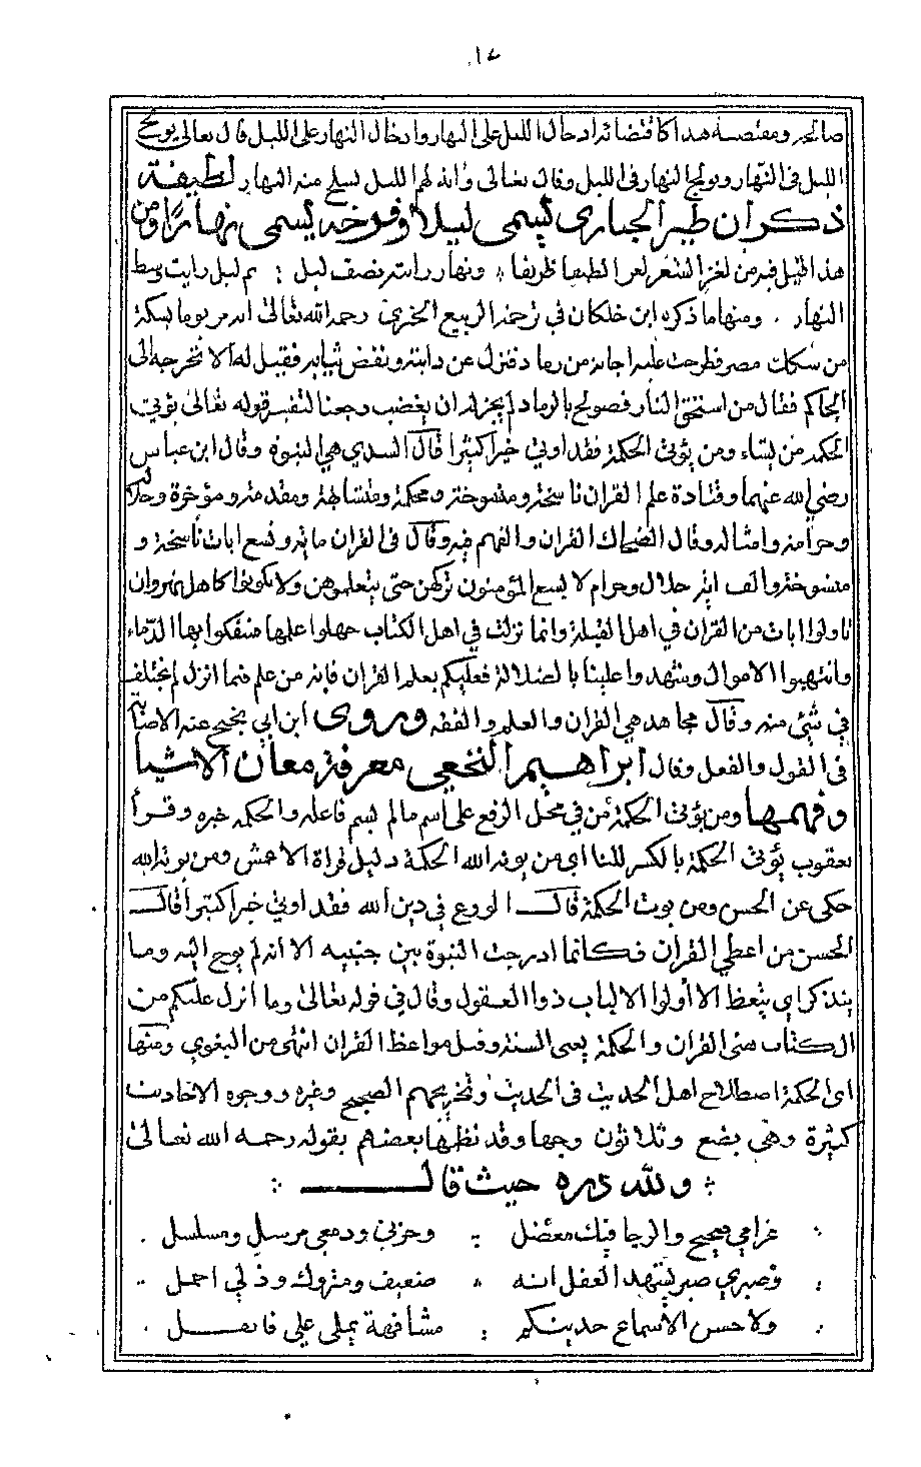 ١٤
صالحه ومقتصة هذا كاقتضائه ادخال الليل على النهار وادخال النهار على الليل قال تعالى يولج
الليل في النهار ويولج النهار في الليل وقال تعالى وآية لهم الليل نسلخ منه النهار لطيفة
ذكر ان طير الحبارى يسمى ليلا وفرخه يسمى نهارا ومن
هذا قيل فيه من لغز الشعر لغزا لطيفا ظريفا ونهار رايت نصف ليل ثم ليل رايت وسط
النهار . ومنها ما ذكره ابن خلكان في ترجمة الربيع الجيزي رحمه الله تعالى انه مر يوما بسكة
من سكك مصر فطرحت عليه اجانة من رماد فنزل عن دابته ونفض ثيابه فقيل له الا تخرجه الى
الحاكم فقال من استحق النار فصولح بالرماد لم يجز له ان يغضب رجعنا لتفسير قوله تعالى يؤتي
الحكمة من يشاء ومن يؤتى الحكمة فقد اوتي خيرا كثيرا قال السدي هي النبوة وقال ابن عباس
رضي الله عنهما وقتادة علم القران ناسخه ومنسوخه ومحكمه ومتشابهه ومقدمه ومؤخره وحلاله
وحرامه وامثاله وقال الضحاك القران والفهم فيه وقال في القران ماية وتسع ايات ناسخة و
منسوخة والف اية حلال وحرام لا يسع المؤمنون تركهن حتى يتعلموهن ولا تكونوا كاهل نهروان
تاولوا ايات من القران في اهل القبلة وانما نزلت في اهل الكتاب جهلوا علمها فسفكوا بها الدماء
وانتهبوا الاموال وشهدوا علينا بالضلالة فعليكم بعلم القران فانه من علم فيما انزل لم يختلف
في شئ منه وقال مجاهد هي القران والعلم والفقه وروى ابن ابي نجيح عنه الاصابة
في القول والفعل وقال ابراهيم النخعي معرفة معان الاشيا
وفهمها ومن يؤتى الحكمة من في محل الرفع على اسم مالم يسم فاعله والحكمة خبره وقرأ
يعقوب يؤتى الحكمة بالكسر للتا اي من يوته الله الحكمة دليل قراة الاعمش ومن يوته الله
حكى عن الحسن ومن يوت الحكمة قال الورع في دين الله فقد اوتي خيرا كثيرا قال
الحسن من اعطي القران فكانما ادرجت النبوة بين جنبيه الا انه لم يوح اليه وما
يتذكر اي يتعظ الا أولوا الالباب ذوا العقول وقال في قوله تعالى وما انزل عليكم من
الكتاب هي القران والحكمة يعنى السنة وقيل مواعظ القران انتهى من البغوي ومنها
اى الحكمة اصطلاح اهل الحديث في الحديث وتخريجهم الصحيح وغيره ووجوه الاحاديث
كثيرة وهي بضع وثلاثون وجها وقد نظمها بعضهم بقوله رحمه الله تعالى
ولله دره حيث قال
غرامي صحيح والرجا فيك معضل وحزني ودمعي مرسل ومسلسل
وصبري صبر يشهد العقل انه ضعيف ومتروك وذلي اجمل
ولا حسن الا سماع حديثكم مشافهة يملى علي فانقل